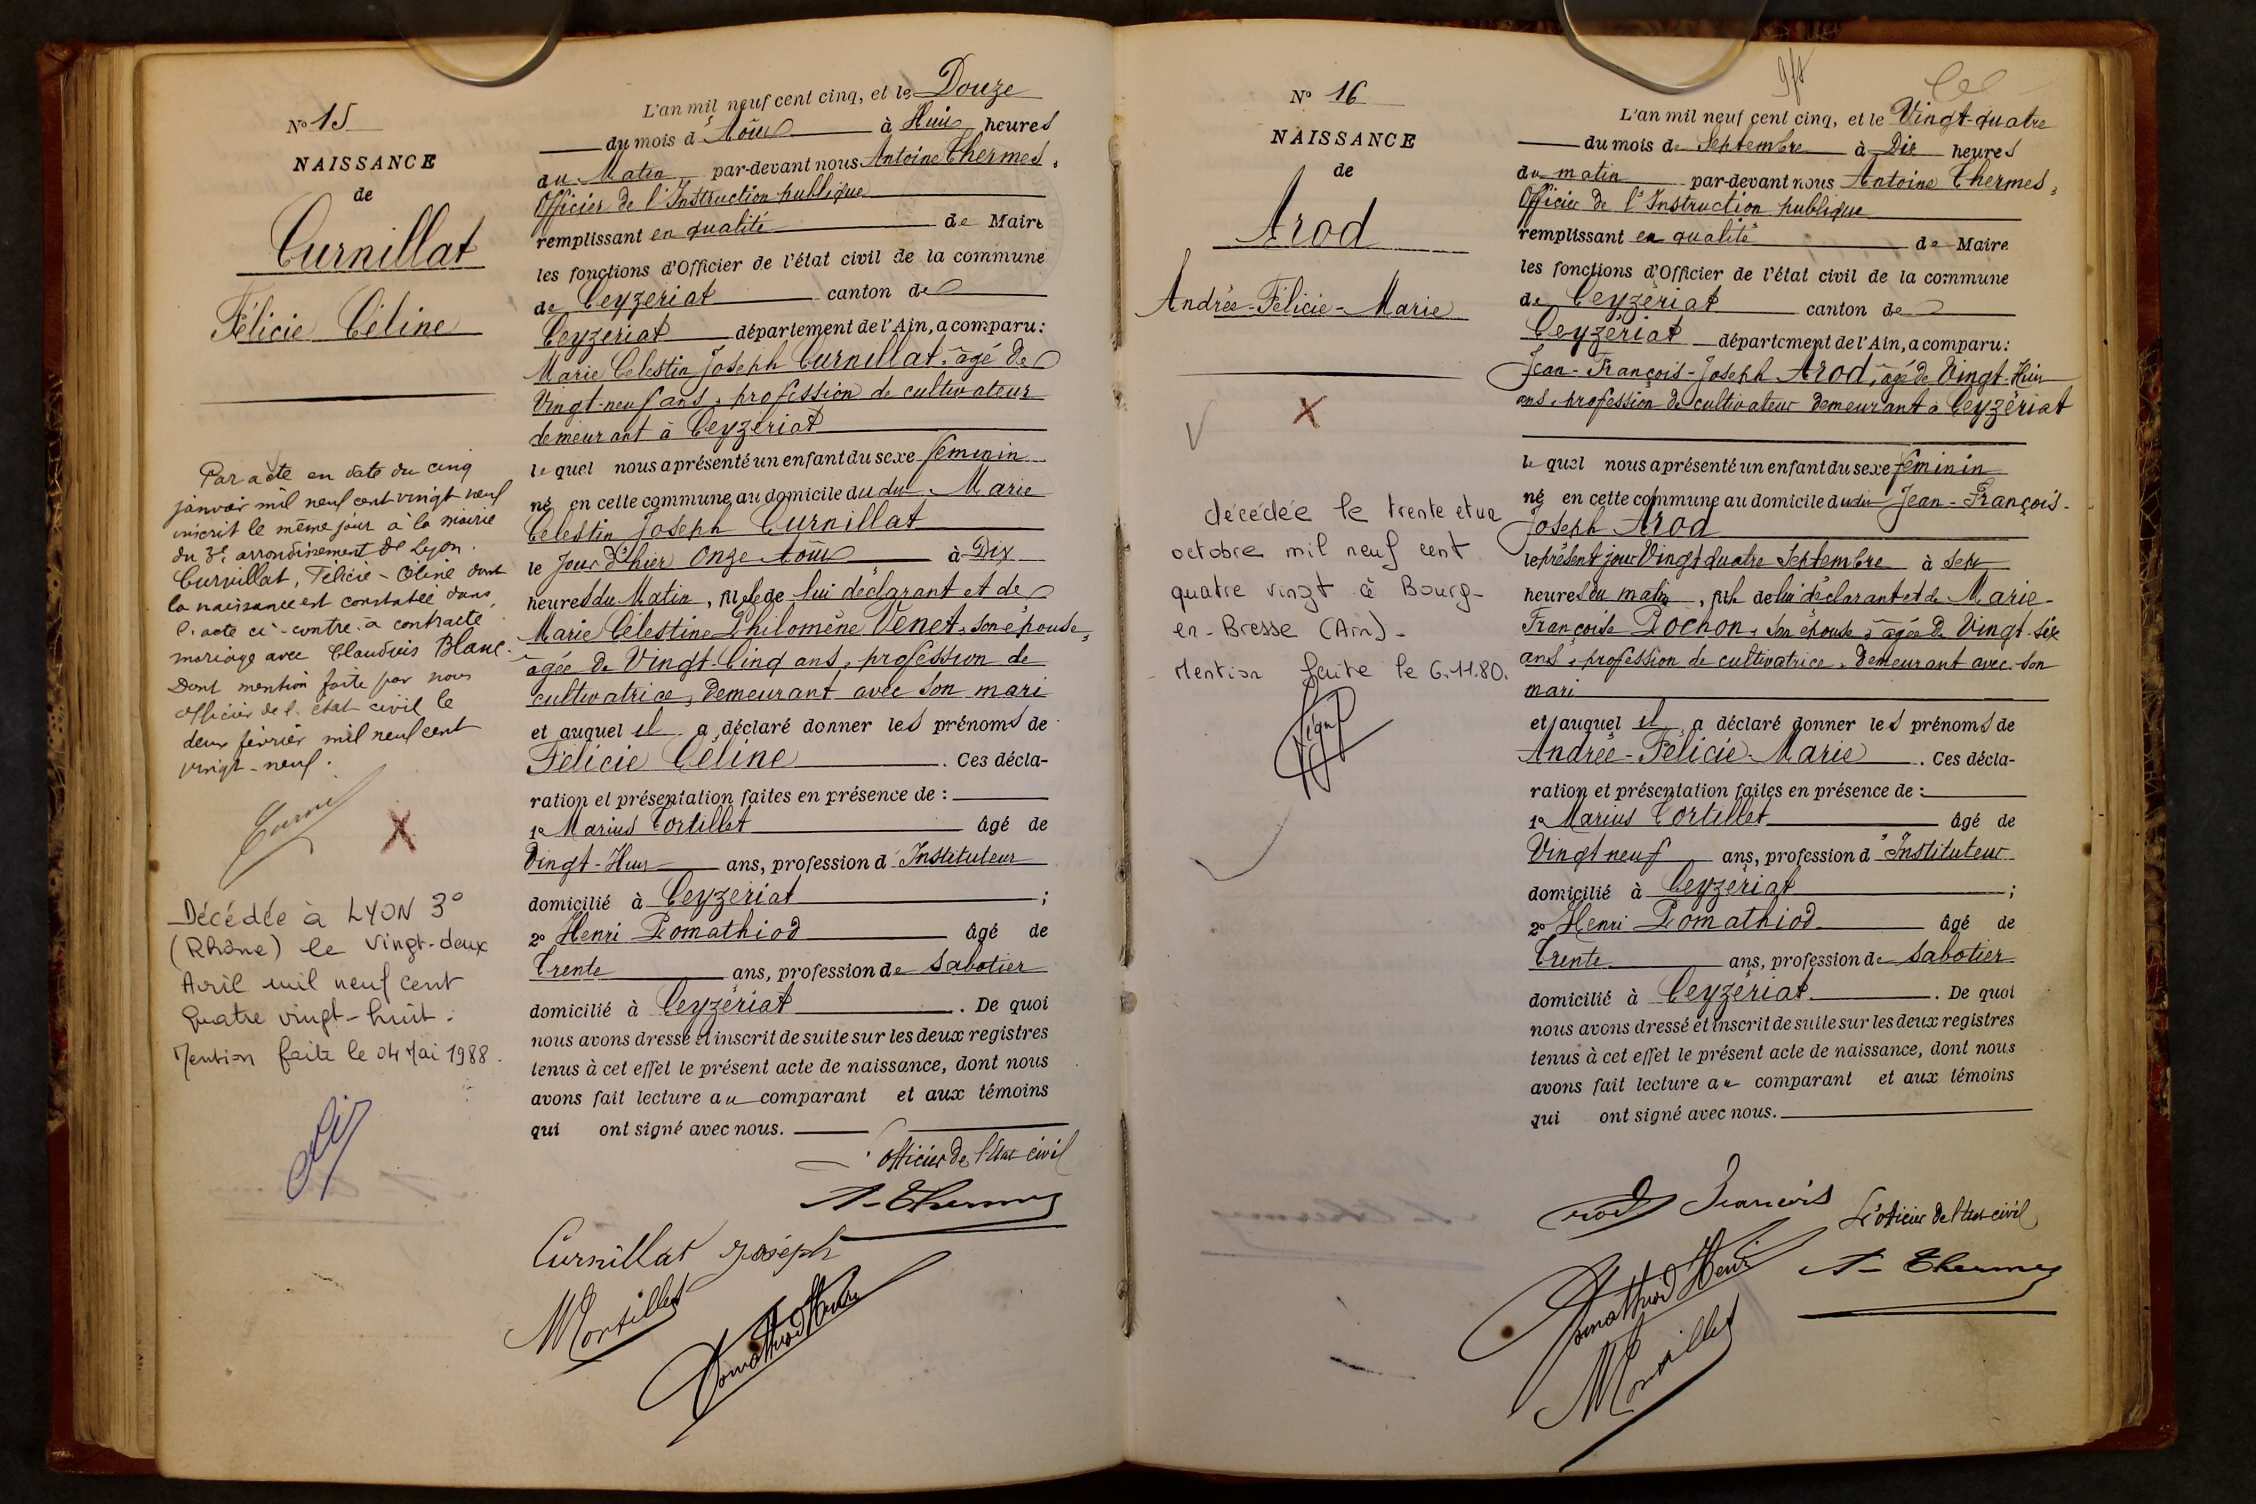 N° 15
NAISSANCE
de
Curnillat
Félicie Céline
Par acte en date du cinq
janvier mil neuf cent vingt neuf
inscrit le même jour à la mairie
du 3e arrondissement de Lyon.
Curnillat, Félicie-Céline dont
la naissance est constatée dans
l'acte ci-contre a contracté
mariage avec Claudius Blanc.
Dont mention faite par nous
officier de l'état civil le
deux février mil neuf cent
vingt-neuf.
Décédée à LYON 3°
(Rhône) le vingt-deux
Avril mil neuf cent
quatre vingt-huit.
Mention faite le 04 Mai 1988.
L'an mil neuf cent cinq, et le Douze
du mois d'Août à Huit heures
du Matin par-devant nous Antoine Thermes,
Officier de l'Instruction publique
remplissant en qualité de Maire
les fonctions d'Officier de l'état civil de la commune
de Ceyzériat canton de
Ceyzériat département de l'Ain, a comparu:
Marie Célestin Joseph Curnillat, âgé de
Vingt-neuf ans, profession de cultivateur
demeurant à Ceyzériat
lequel nous a présenté un enfant du sexe féminin
né en cette commune, au domicile du dit Marie
Célestin Joseph Curnillat
le Jour d'hier Onze Août à Dix
heures du Matin, fille de lui déclarant et de
Marie Célestine Philomène Venet, son épouse,
âgée de Vingt-Cinq ans, profession de
cultivatrice, Demeurant avec son mari
et auquel il a déclaré donner les prénoms de
Félicie Céline. Ces décla-
ration et présentation faites en présence de :
1° Marius Tortillet âgé de
Vingt-Huit ans, profession d'Instituteur
domicilié à Ceyzériat ;
2° Henri Pomathiod âgé de
Trente ans, profession de Sabotier
domicilié à Ceyzériat. De quoi
nous avons dressé et inscrit de suite sur les deux registres
tenus à cet effet le présent acte de naissance, dont nous
avons fait lecture au comparant et aux témoins
qui ont signé avec nous.
L'officier de l'État civil
A. Thermes
Curnillat Joseph
M Tortillet
Pomathiod Henri
N° 16
NAISSANCE
de
Arod
Andrée-Félicie-Marie
décédée le trente et un
octobre mil neuf cent
quatre vingt à Bourg-
en-Bresse (Ain)-
Mention faite le 6.11.80.
L'an mil neuf cent cinq, et le Vingt-quatre
du mois de Septembre à Dix heures
du matin par-devant nous Antoine Thermes,
Officier de l'Instruction publique
remplissant en qualité de Maire
les fonctions d'Officier de l'état civil de la commune
de Ceyzériat canton de
Ceyzériat département de l'Ain, a comparu:
Jean-François-Joseph Arod, âgé de Vingt-Huit
ans, profession de cultivateur demeurant à Ceyzériat
lequel nous a présenté un enfant du sexe féminin
né en cette commune au domicile du dit Jean-François-
Joseph Arod
le présent jour Vingt quatre Septembre à sept
heures du matin, fille de lui déclarant et de Marie-
Françoise Pochon, son épouse, âgée de Vingt-six
ans, profession de cultivatrice, Demeurant avec son
mari
et auquel il a déclaré donner les prénoms de
Andrée-Félicie-Marie. Ces décla-
ration et présentation faites en présence de :
1° Marius Tortillet âgé de
Vingt neuf ans, profession d'Instituteur
domicilié à Ceyzériat ;
2° Henri Pomathiod âgé de
Trente ans, profession de Sabotier
domicilié à Ceyzériat. De quoi
nous avons dressé et inscrit de suite sur les deux registres
tenus à cet effet le présent acte de naissance, dont nous
avons fait lecture au comparant et aux témoins
qui ont signé avec nous.
Arod François
L'officier de l'État civil
A. Thermes
Pomathiod Henri
M Tortillet